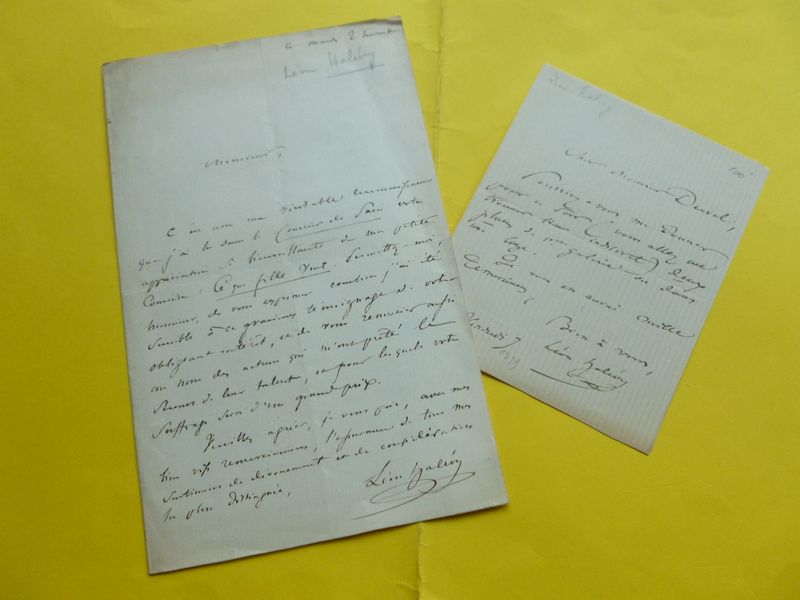 Ce mardi 2 novembre
Léon Halévy
Monsieur,
C'est avec une véritable reconnaissance
que j'ai lu dans le Courrier de Paris votre
appréciation si bienveillante de ma petite
Comédie : Ce que fille veut. Permettez-moi,
Monsieur, de vous exprimer combien j'ai été
sensible à ce gracieux témoignage de votre
obligeant intérêt, et de vous remercier aussi
au nom des acteurs qui m'ont prêté le
secours de leur talent, et pour lesquels votre
suffrage sera d'un grand prix.
Veuillez agréer, je vous prie, avec mes
bien vifs remerciemens, l'assurance de tous mes
sentimens de dévouement et de considération
la plus distinguée,
Léon Halévy
Léon Halévy
100
Cher Monsieur Derval,
Pourriez-vous me donner
pour ce soir (vous allez me
trouver bien indiscret) deux
places de galerie ou dans
une loge.
Je vous en aurai mille
Bien à vous,
Léon Halévy
Vendredi 7
1859